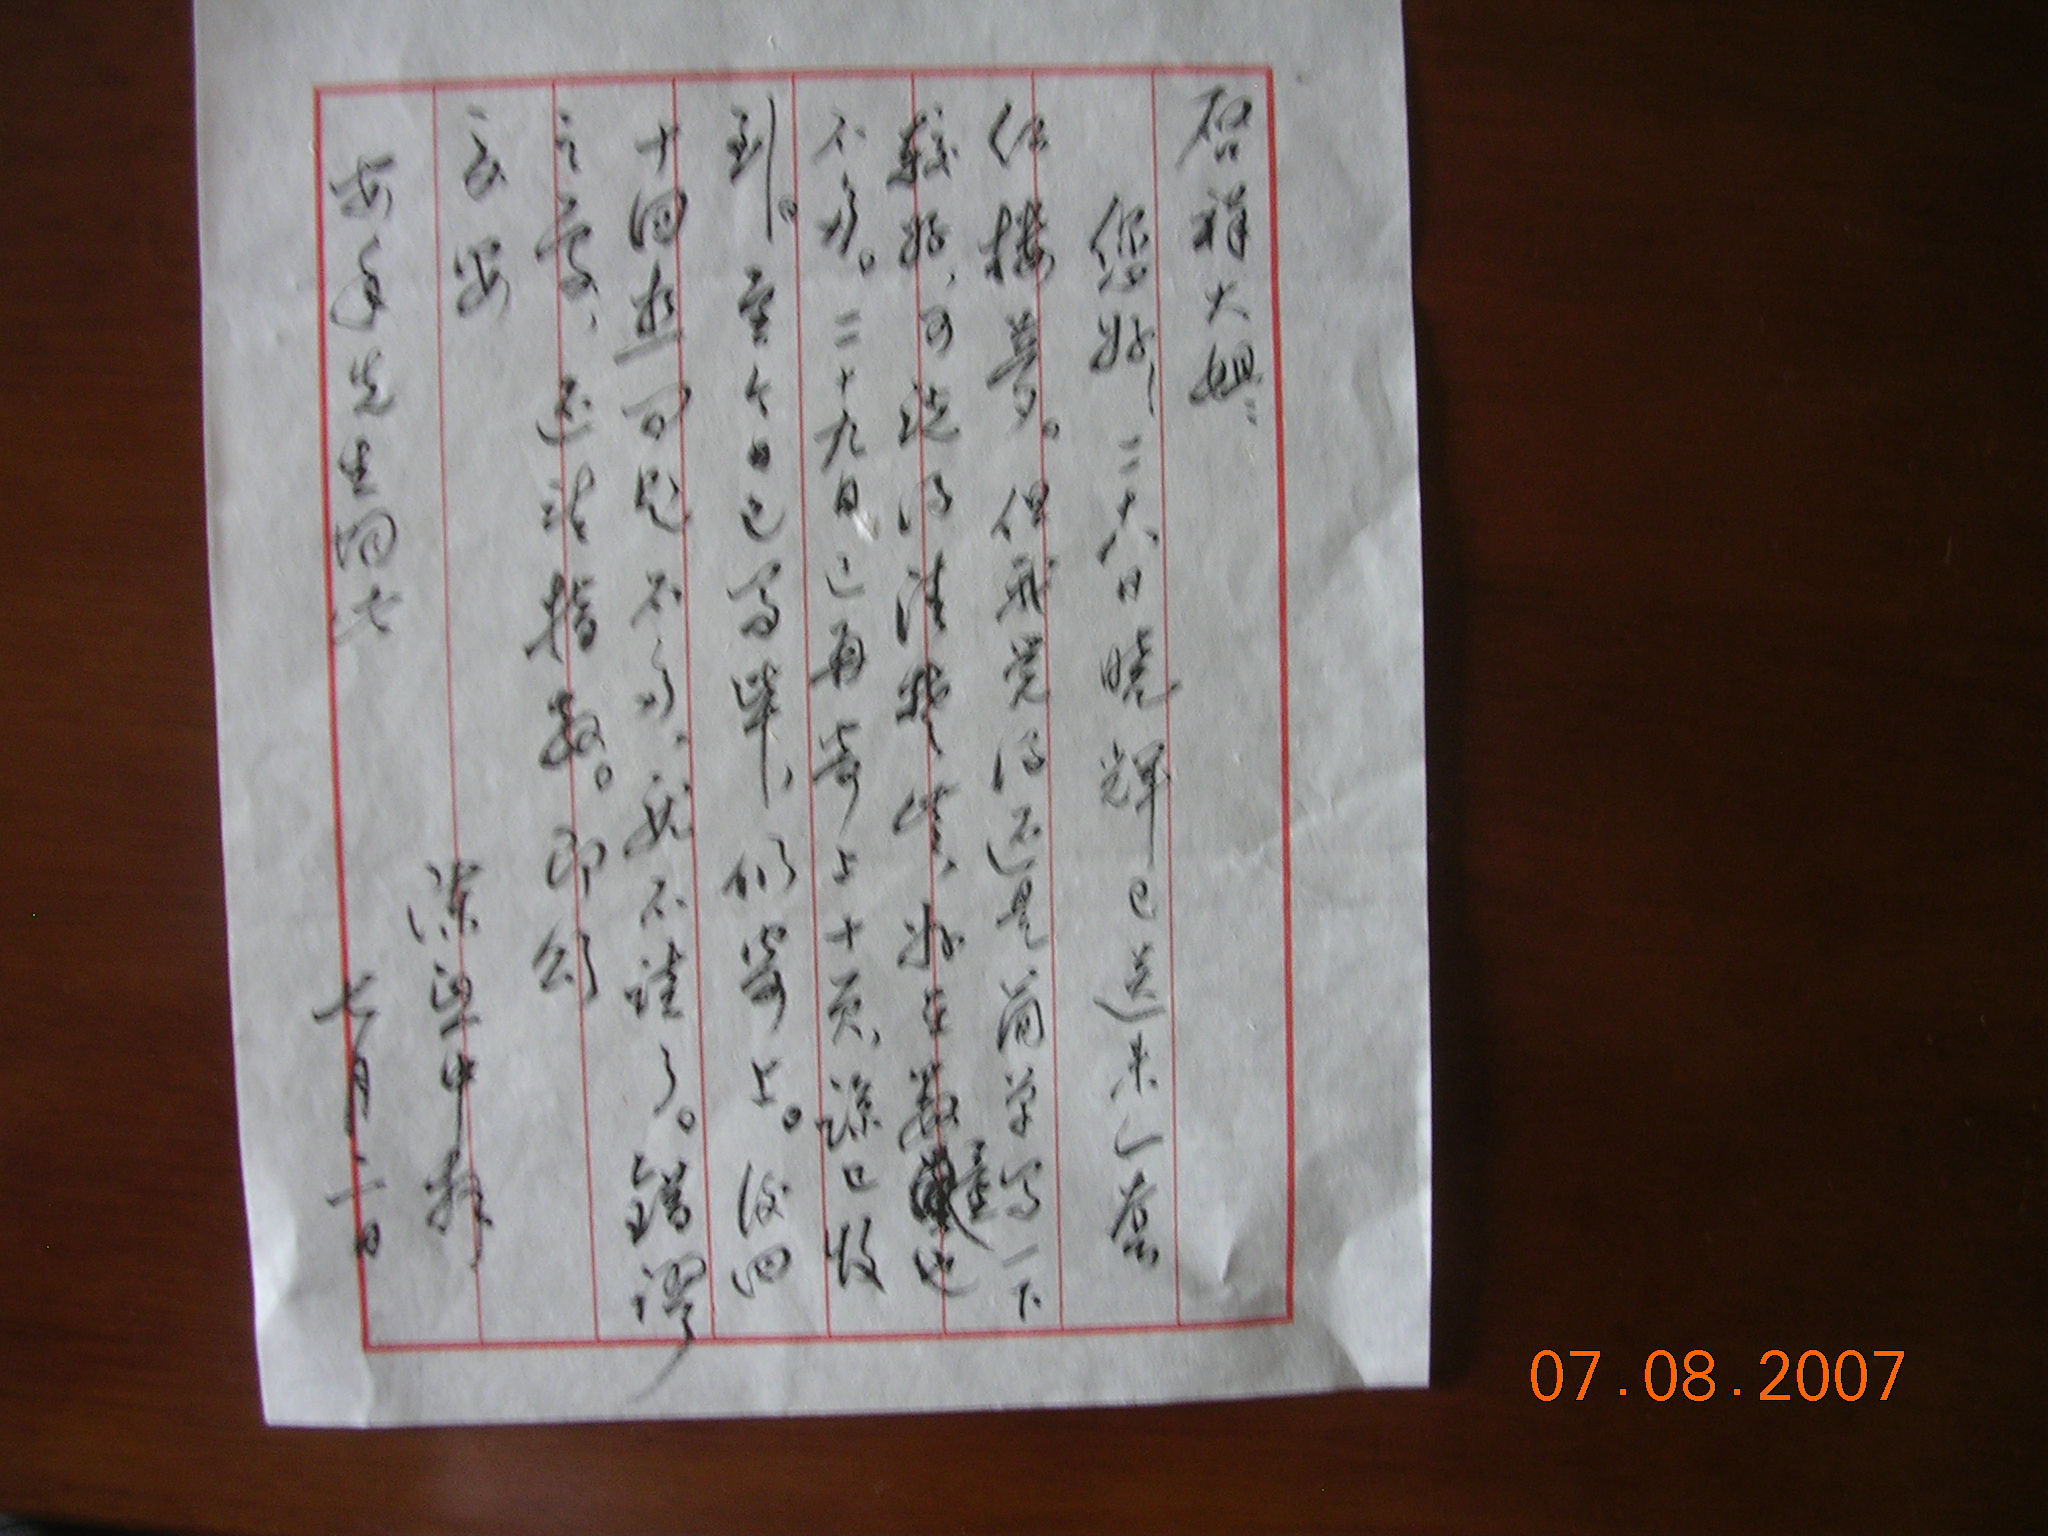 启祥大姐：
您好！二十六日晓辉已送来一套
红楼梦。但我觉得还是简单写一下
较好，可说得清楚些，好在数量也
不多。二十九日已再寄上十页，谅已收
到。至今日已写毕，仍寄上。后四
十回 可 不多，就不读了。错谬
之处，还请指教。即颂
安
先生同此
中拜
七月二日
07.08.2007